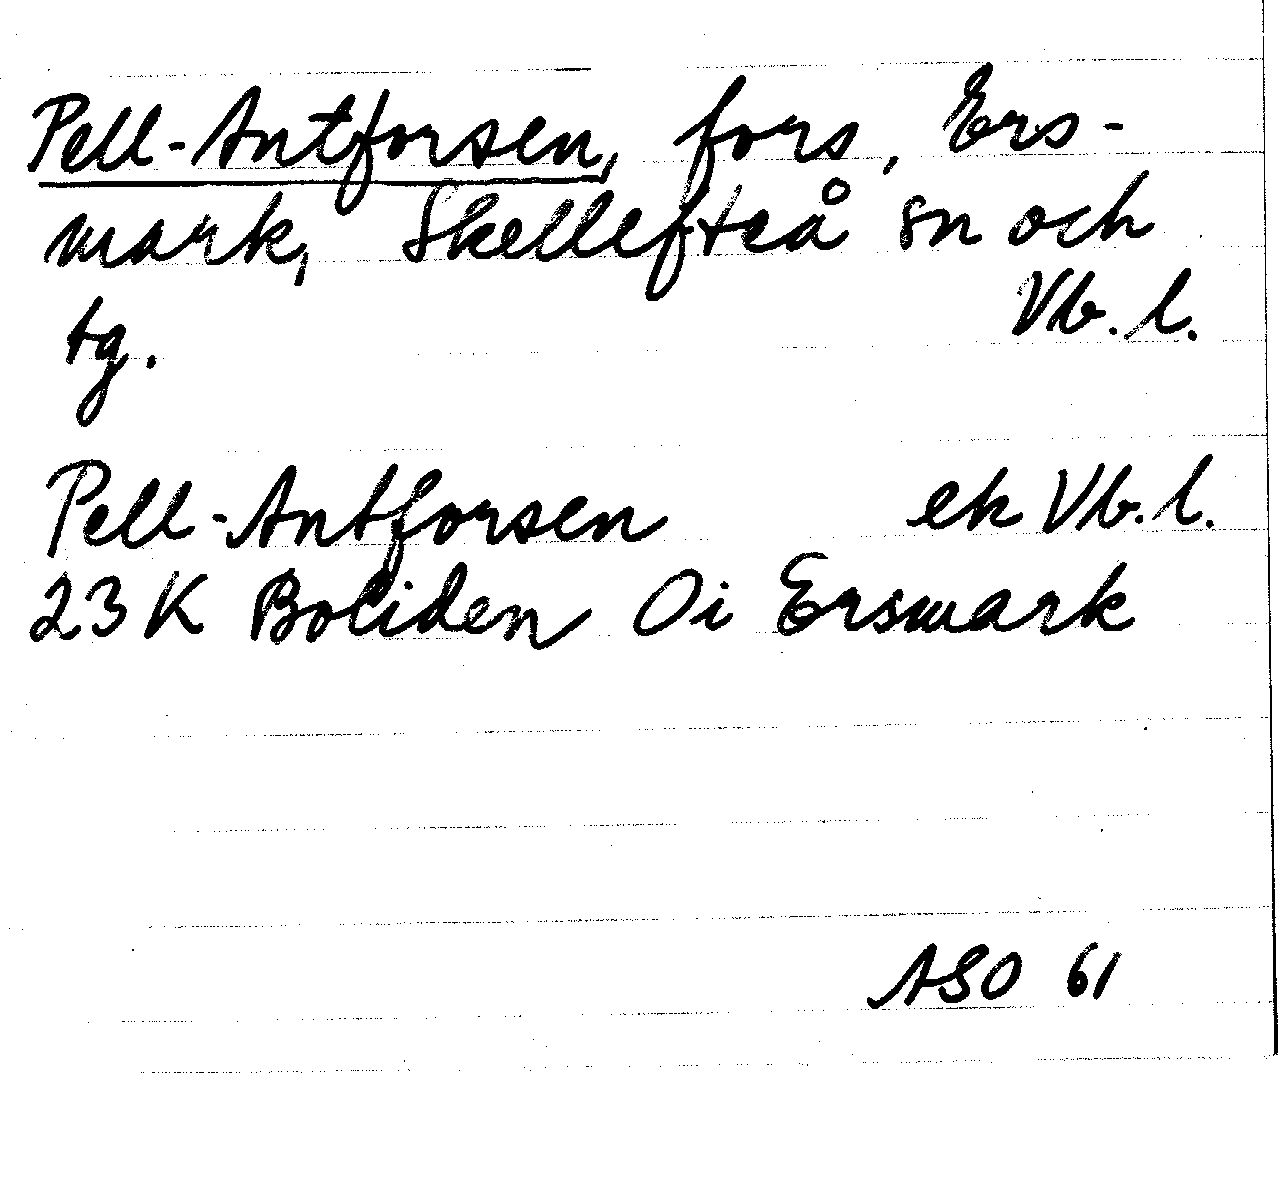 Pell-Antforsen, fors, Ers-
mark, Skellefteå sn och
tg. Vb. l.
Pell-Antforsen ek Vb. l.
23 K Boliden Oi Ersmark
ASO 61